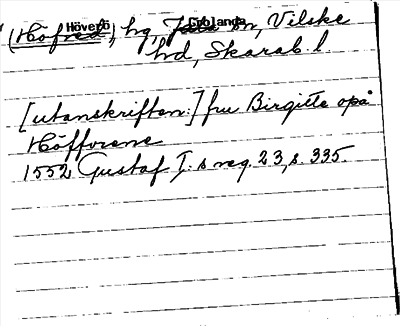 (Höfved), Höverö hg, Grolanda sn, Vilske
hd, Skarab. l.
[utanskriften:] fru Birgitte opå
Höfforene
1552 Gustaf I:s reg. 23, s. 335.